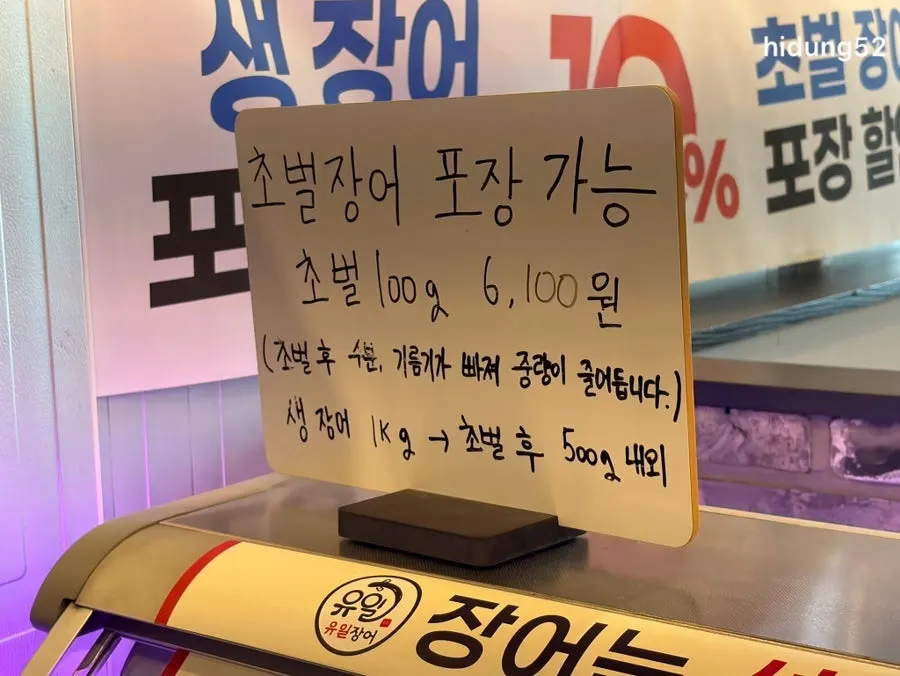 hidung52
생 장어
포
10%
초벌 장어
포장 할
초벌장어 포장 가능
초벌 100g 6,100원
(초벌 후 수분, 기름기가 빠져 중량이 줄어듭니다.)
생 장어 1Kg → 초벌 후 500g 내외
유일
유일장어
장어는